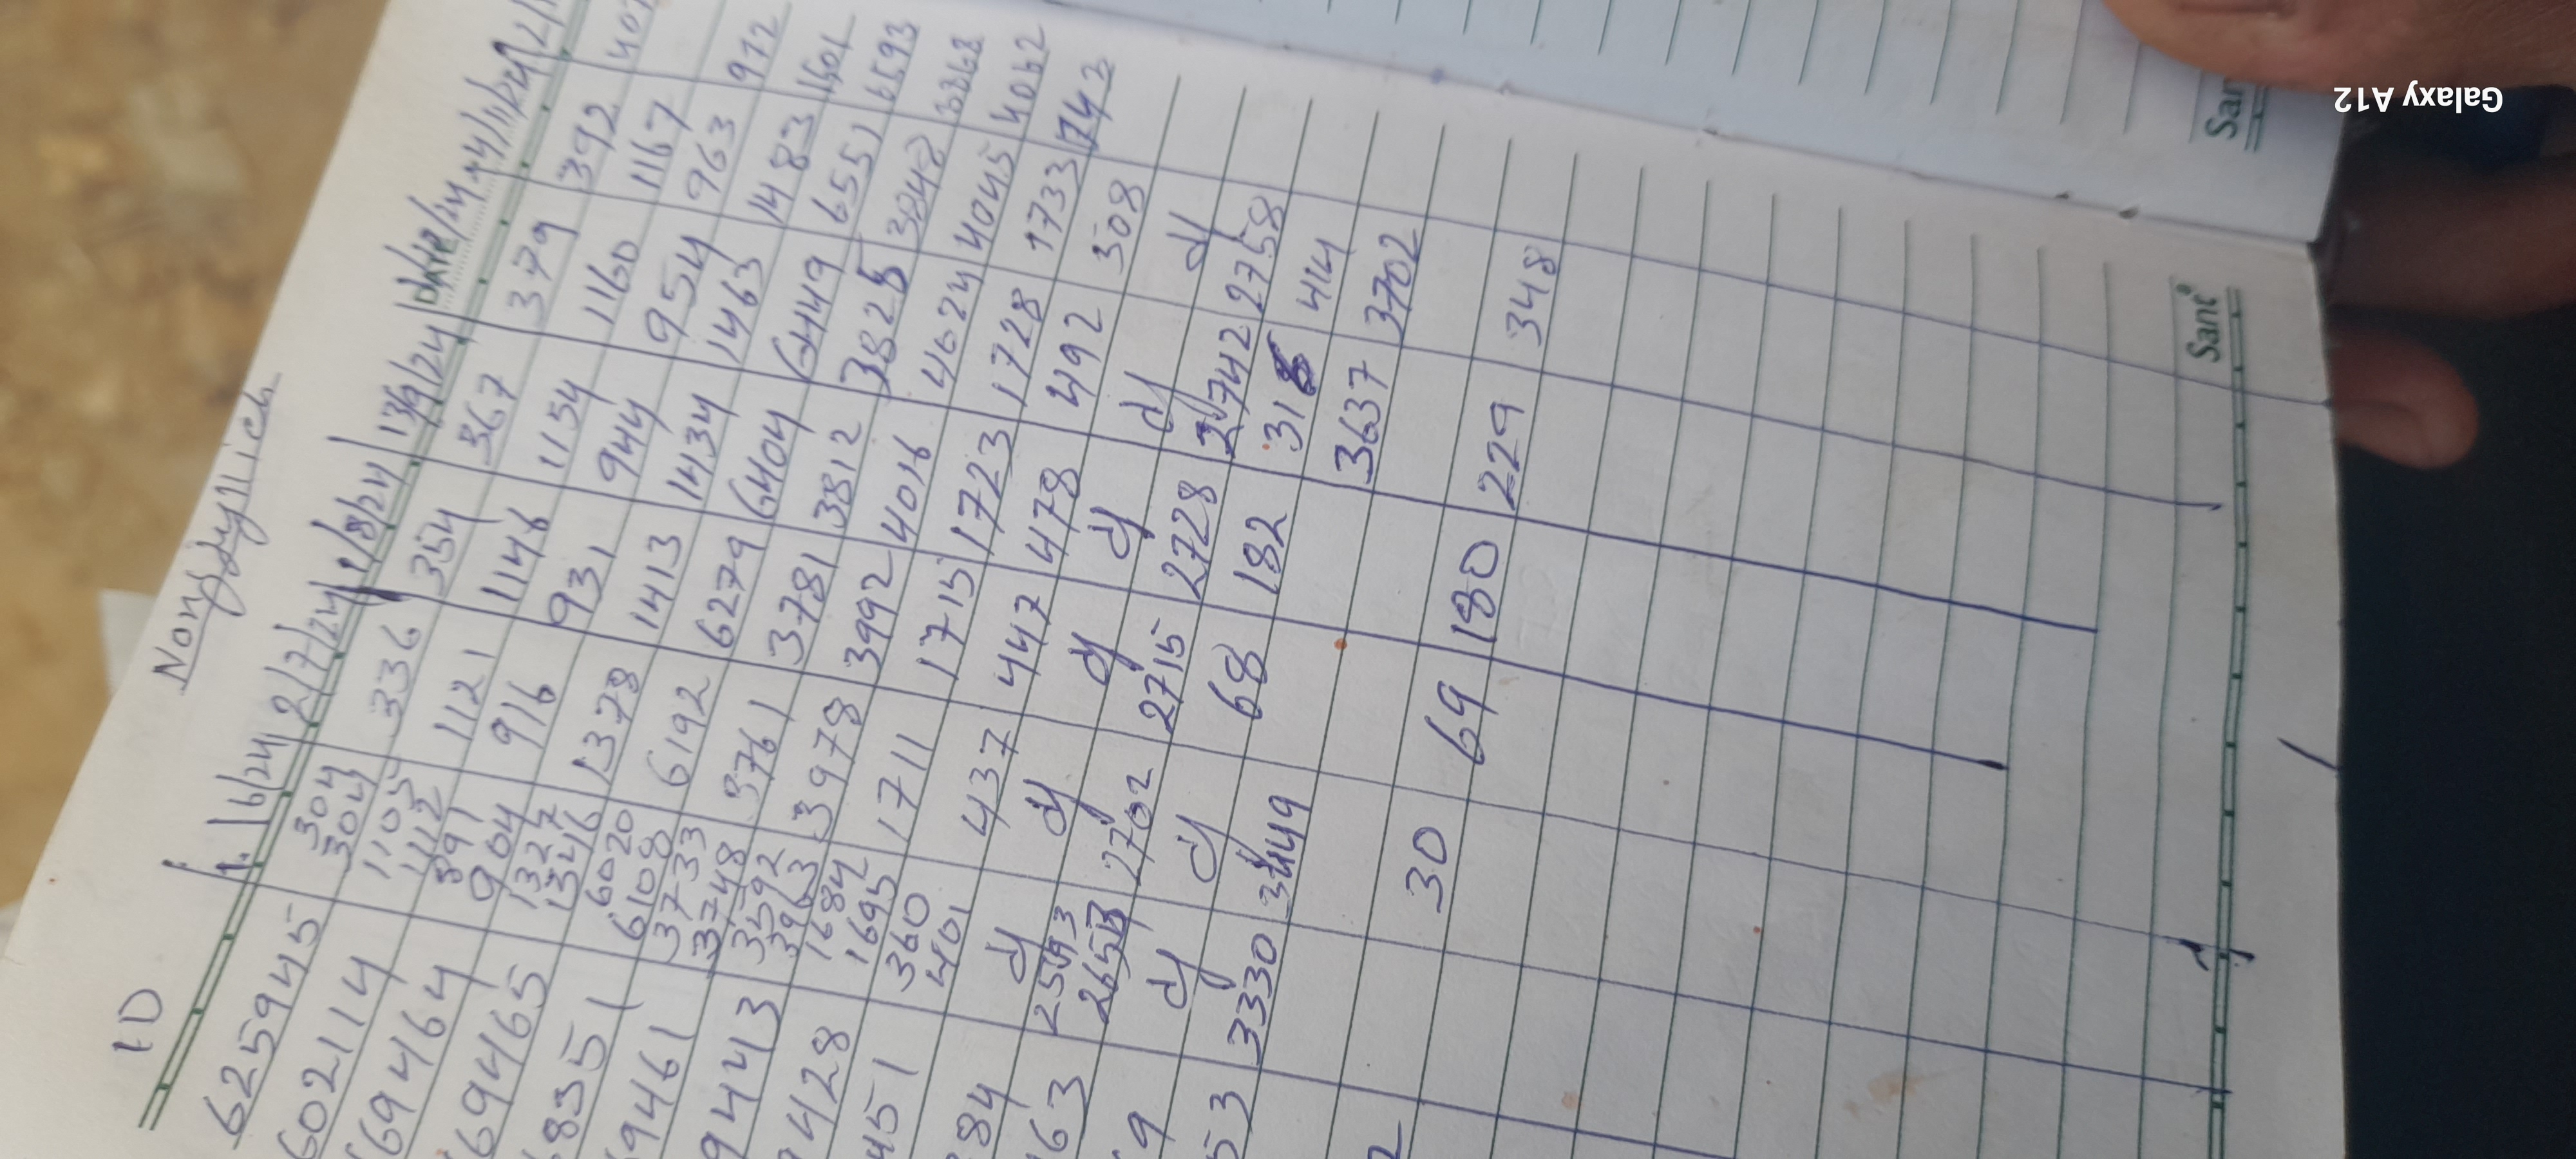 ID
Nongjynrieh
1/6/24 2/7/24 2/8/24 13/9/24 DATE 4/11/24
625945 304 336 354 367 379 392 407
304
602114 1105 1121 1146 1154 1160 1167
1112
69464 891 916 931 944 954 963 972
904
69465 1327 1378 1413 1434 1463 1483 1501
1346
8351 6020 6192 6279 6404 6449 6551 6593
6108
9461 3733 3761 3781 3812 3825 3848 3868
3748
9443 3592 3978 3992 4016 4024 4045 4062
3963
9428 1684 1711 1715 1723 1728 1733 1743
1695
451 360 437 447 478 492 508
401
84 dy dy dy dy dy dy
63 2702 2715 2728 2742 2758
9 dy dy 68 182 316 414
53 3330 3449 3637 3702
30 69 180 229 348
Sant
San
Galaxy A12